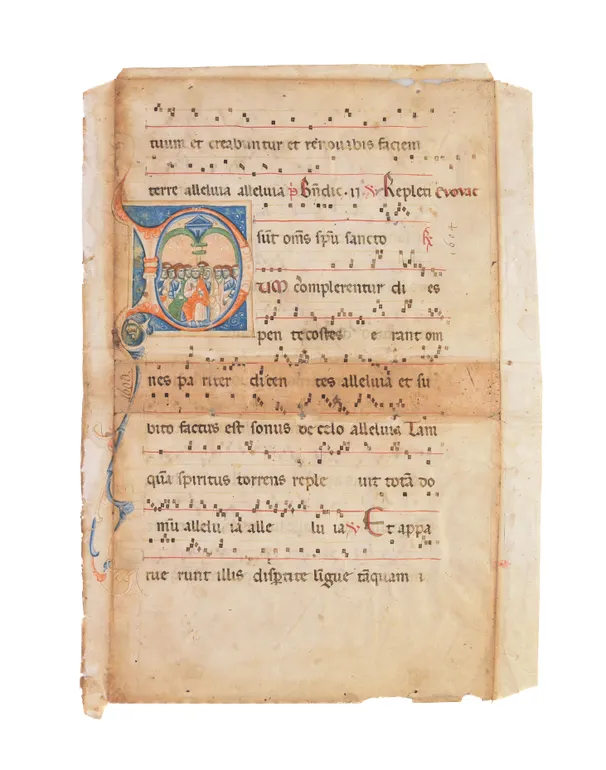 tuum et creabuntur et renouabis faciem
terre alleluia alleluia p̄ Bn̄dic · 11 ℣ Repleti Evovac
sūt om̄s sp̄u sancto ℟
UM cōplerentur di es
pen te costes e rant om
nes pa riter di cen tes alleluia et su
bito factus est sonus de celo alleluia Tam
quā spiritus torrens reple uit totā do
mū allelu ia alle lu ia ℣ Et appa
rue runt illis disꝑtite līgue tāquam i
1604
1600